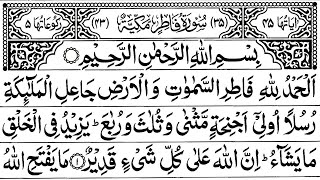 اٰیاتها ۴۵ (۳۵) سُوْرَةُ فَاطِرٍ مَكِّيَّةٌ (۴۳) رکوعاتها ۵
بِسْمِ اللّٰهِ الرَّحْمٰنِ الرَّحِيْمِ
اَلْحَمْدُ لِلّٰهِ فَاطِرِ السَّمٰوٰتِ وَالْاَرْضِ جَاعِلِ الْمَلٰٓئِكَةِ
رُسُلًا اُولِيْٓ اَجْنِحَةٍ مَّثْنٰى وَثُلٰثَ وَرُبٰعَ ؕ يَزِيْدُ فِي الْخَلْقِ
مَا يَشَآءُ ؕ اِنَّ اللّٰهَ عَلٰى كُلِّ شَيْءٍ قَدِيْرٌ ۝۱ مَا يَفْتَحِ اللّٰهُ